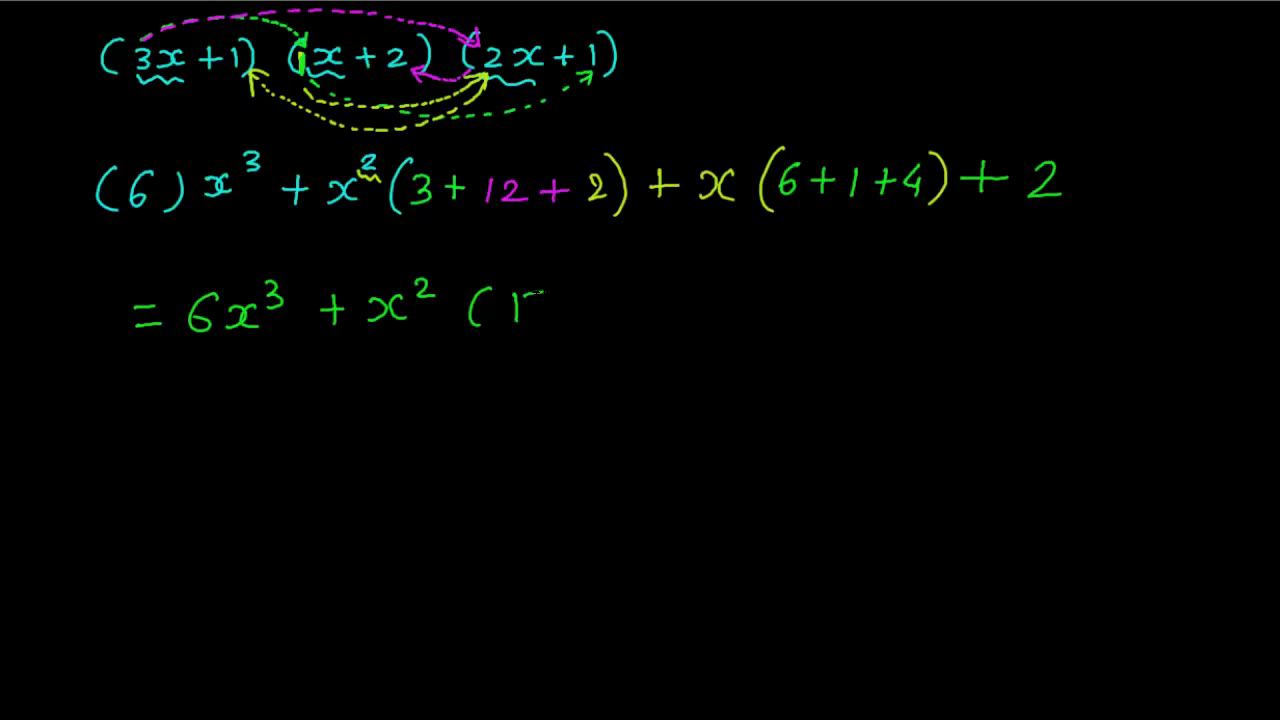 (3x+1) (x+2) (2x+1)
(6) x³ + x² (3+12+2) + x (6+1+4) + 2
= 6x³ + x² (1